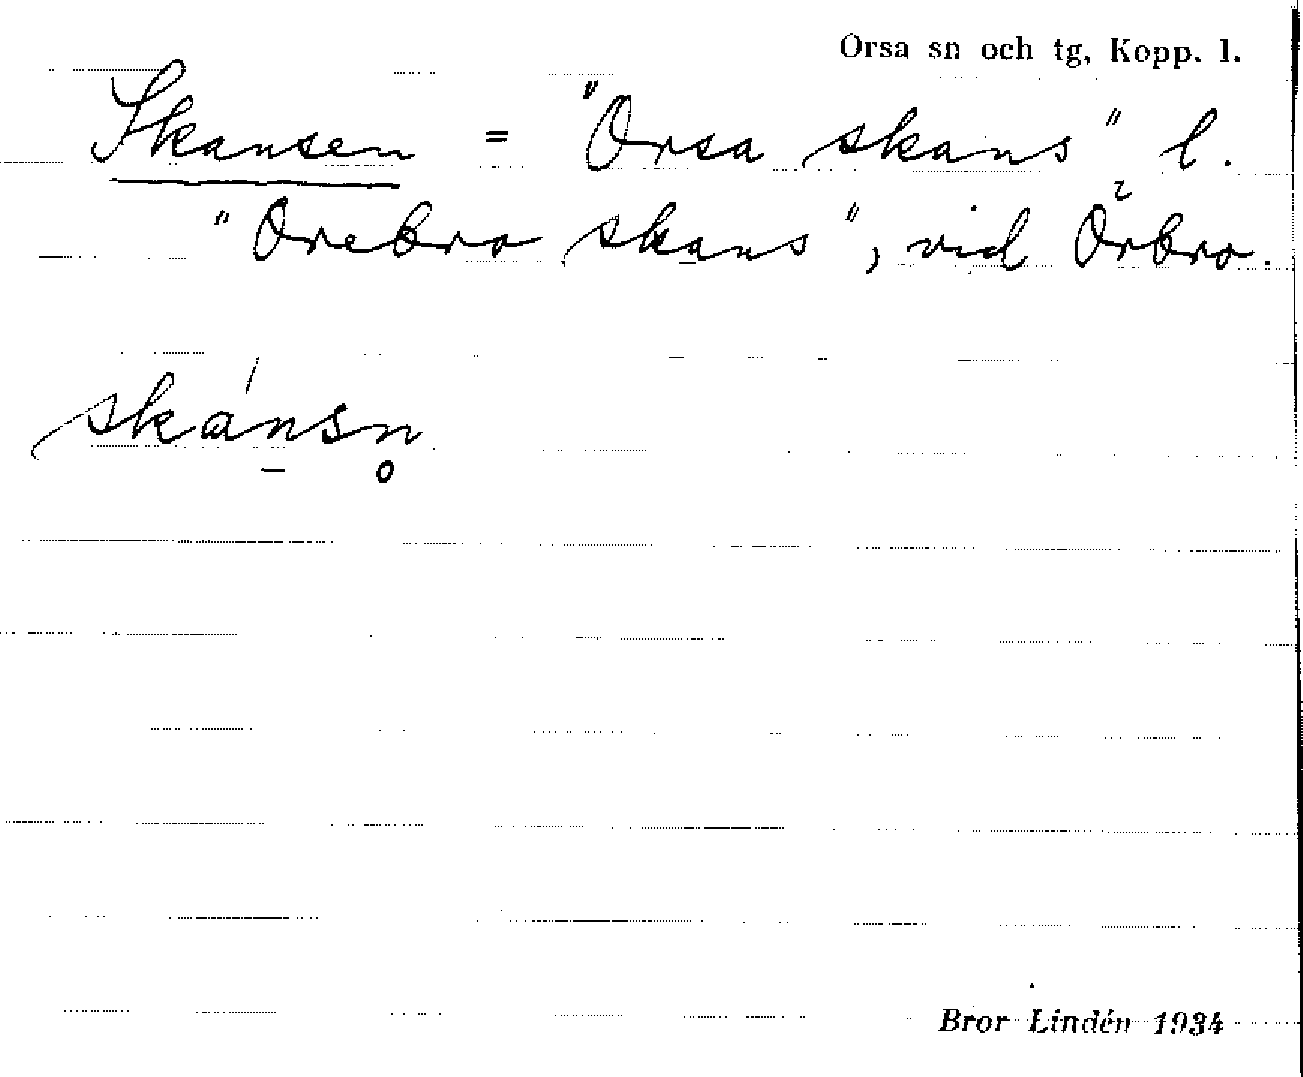 Orsa sn och tg, Kopp. l.
Skansen = "Orsa skans" l.
"Orebro skans", vid Örbro.
skánsn̥
Bror Lindén 1934